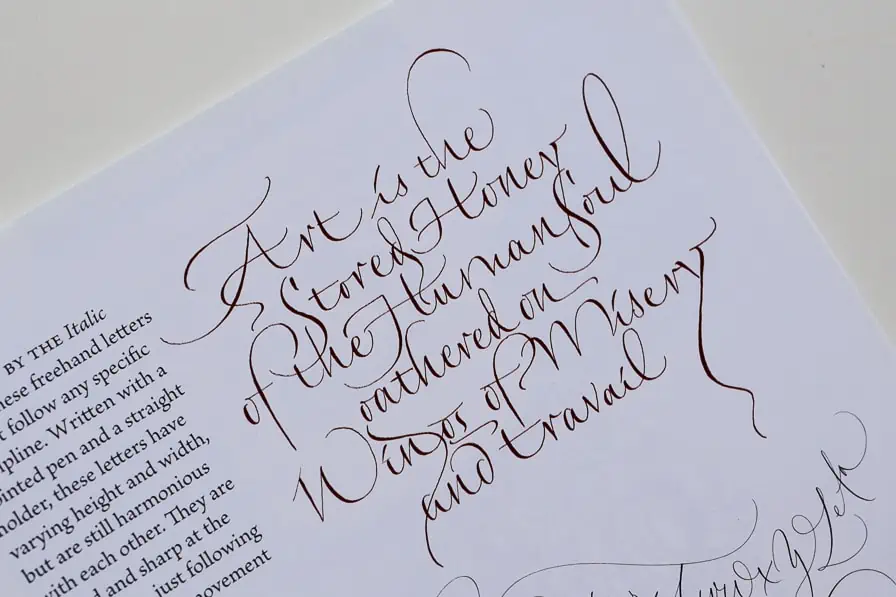 Art is the
Stored Honey
of the Human Soul
gathered on
Wings of Misery
and travail
BY THE Italic
these freehand letters
t follow any specific
ipline. Written with a
ointed pen and a straight
holder, these letters have
varying height and width,
but are still harmonious
with each other. They are
d and sharp at the
just following
movement